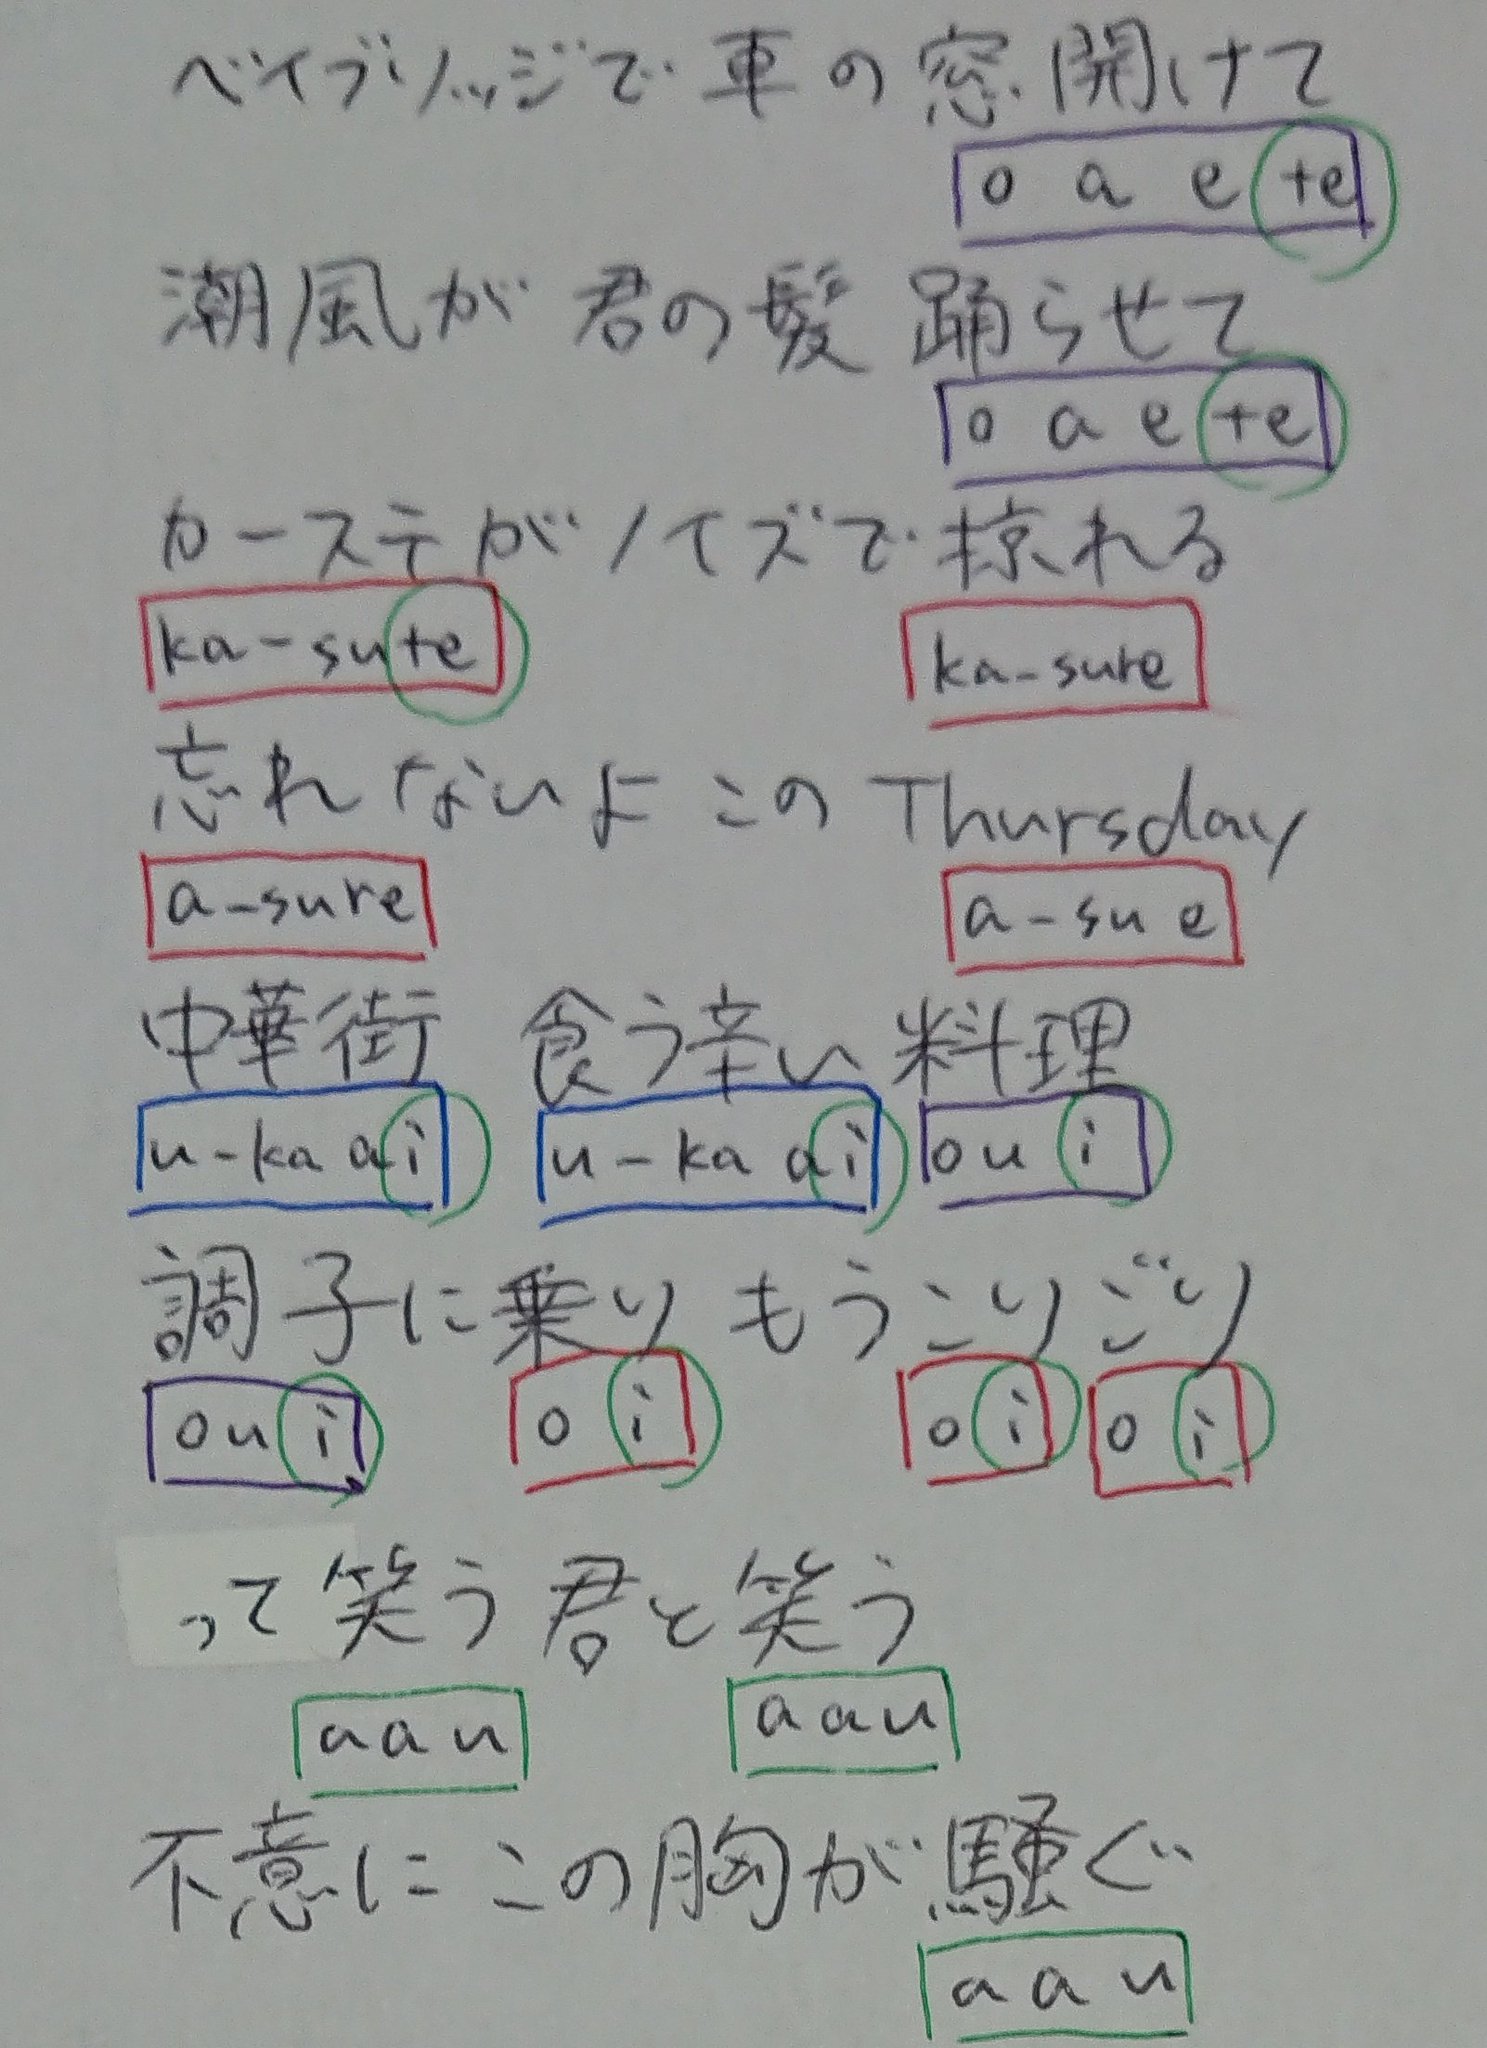 ベイブリッジで車の窓開けて
o a e te
潮風が君の髪踊らせて
o a e te
カーステがノイズで掠れる
ka-sute ka-sure
忘れないよこのThursday
a-sure a-su e
中華街 食う辛い料理
u-ka ai u-ka ai ou i
調子に乗りもうこりごり
ou i o i o i o i
って笑う君と笑う
aau aau
不意にこの胸が騒ぐ
aau